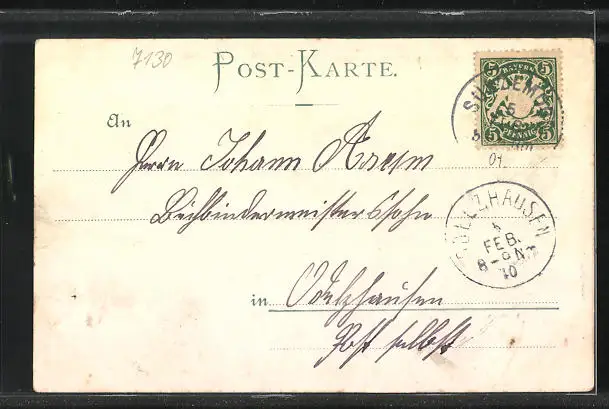 7130
POST-KARTE.
5 BAYERN 5
5 PFENNIG 5
01.
An
Herrn Johann
Buchbindermeisterssohn
ODELZHAUSEN
5
FEB.
8-9 Nm
10
in Odelzhausen
Post selbst